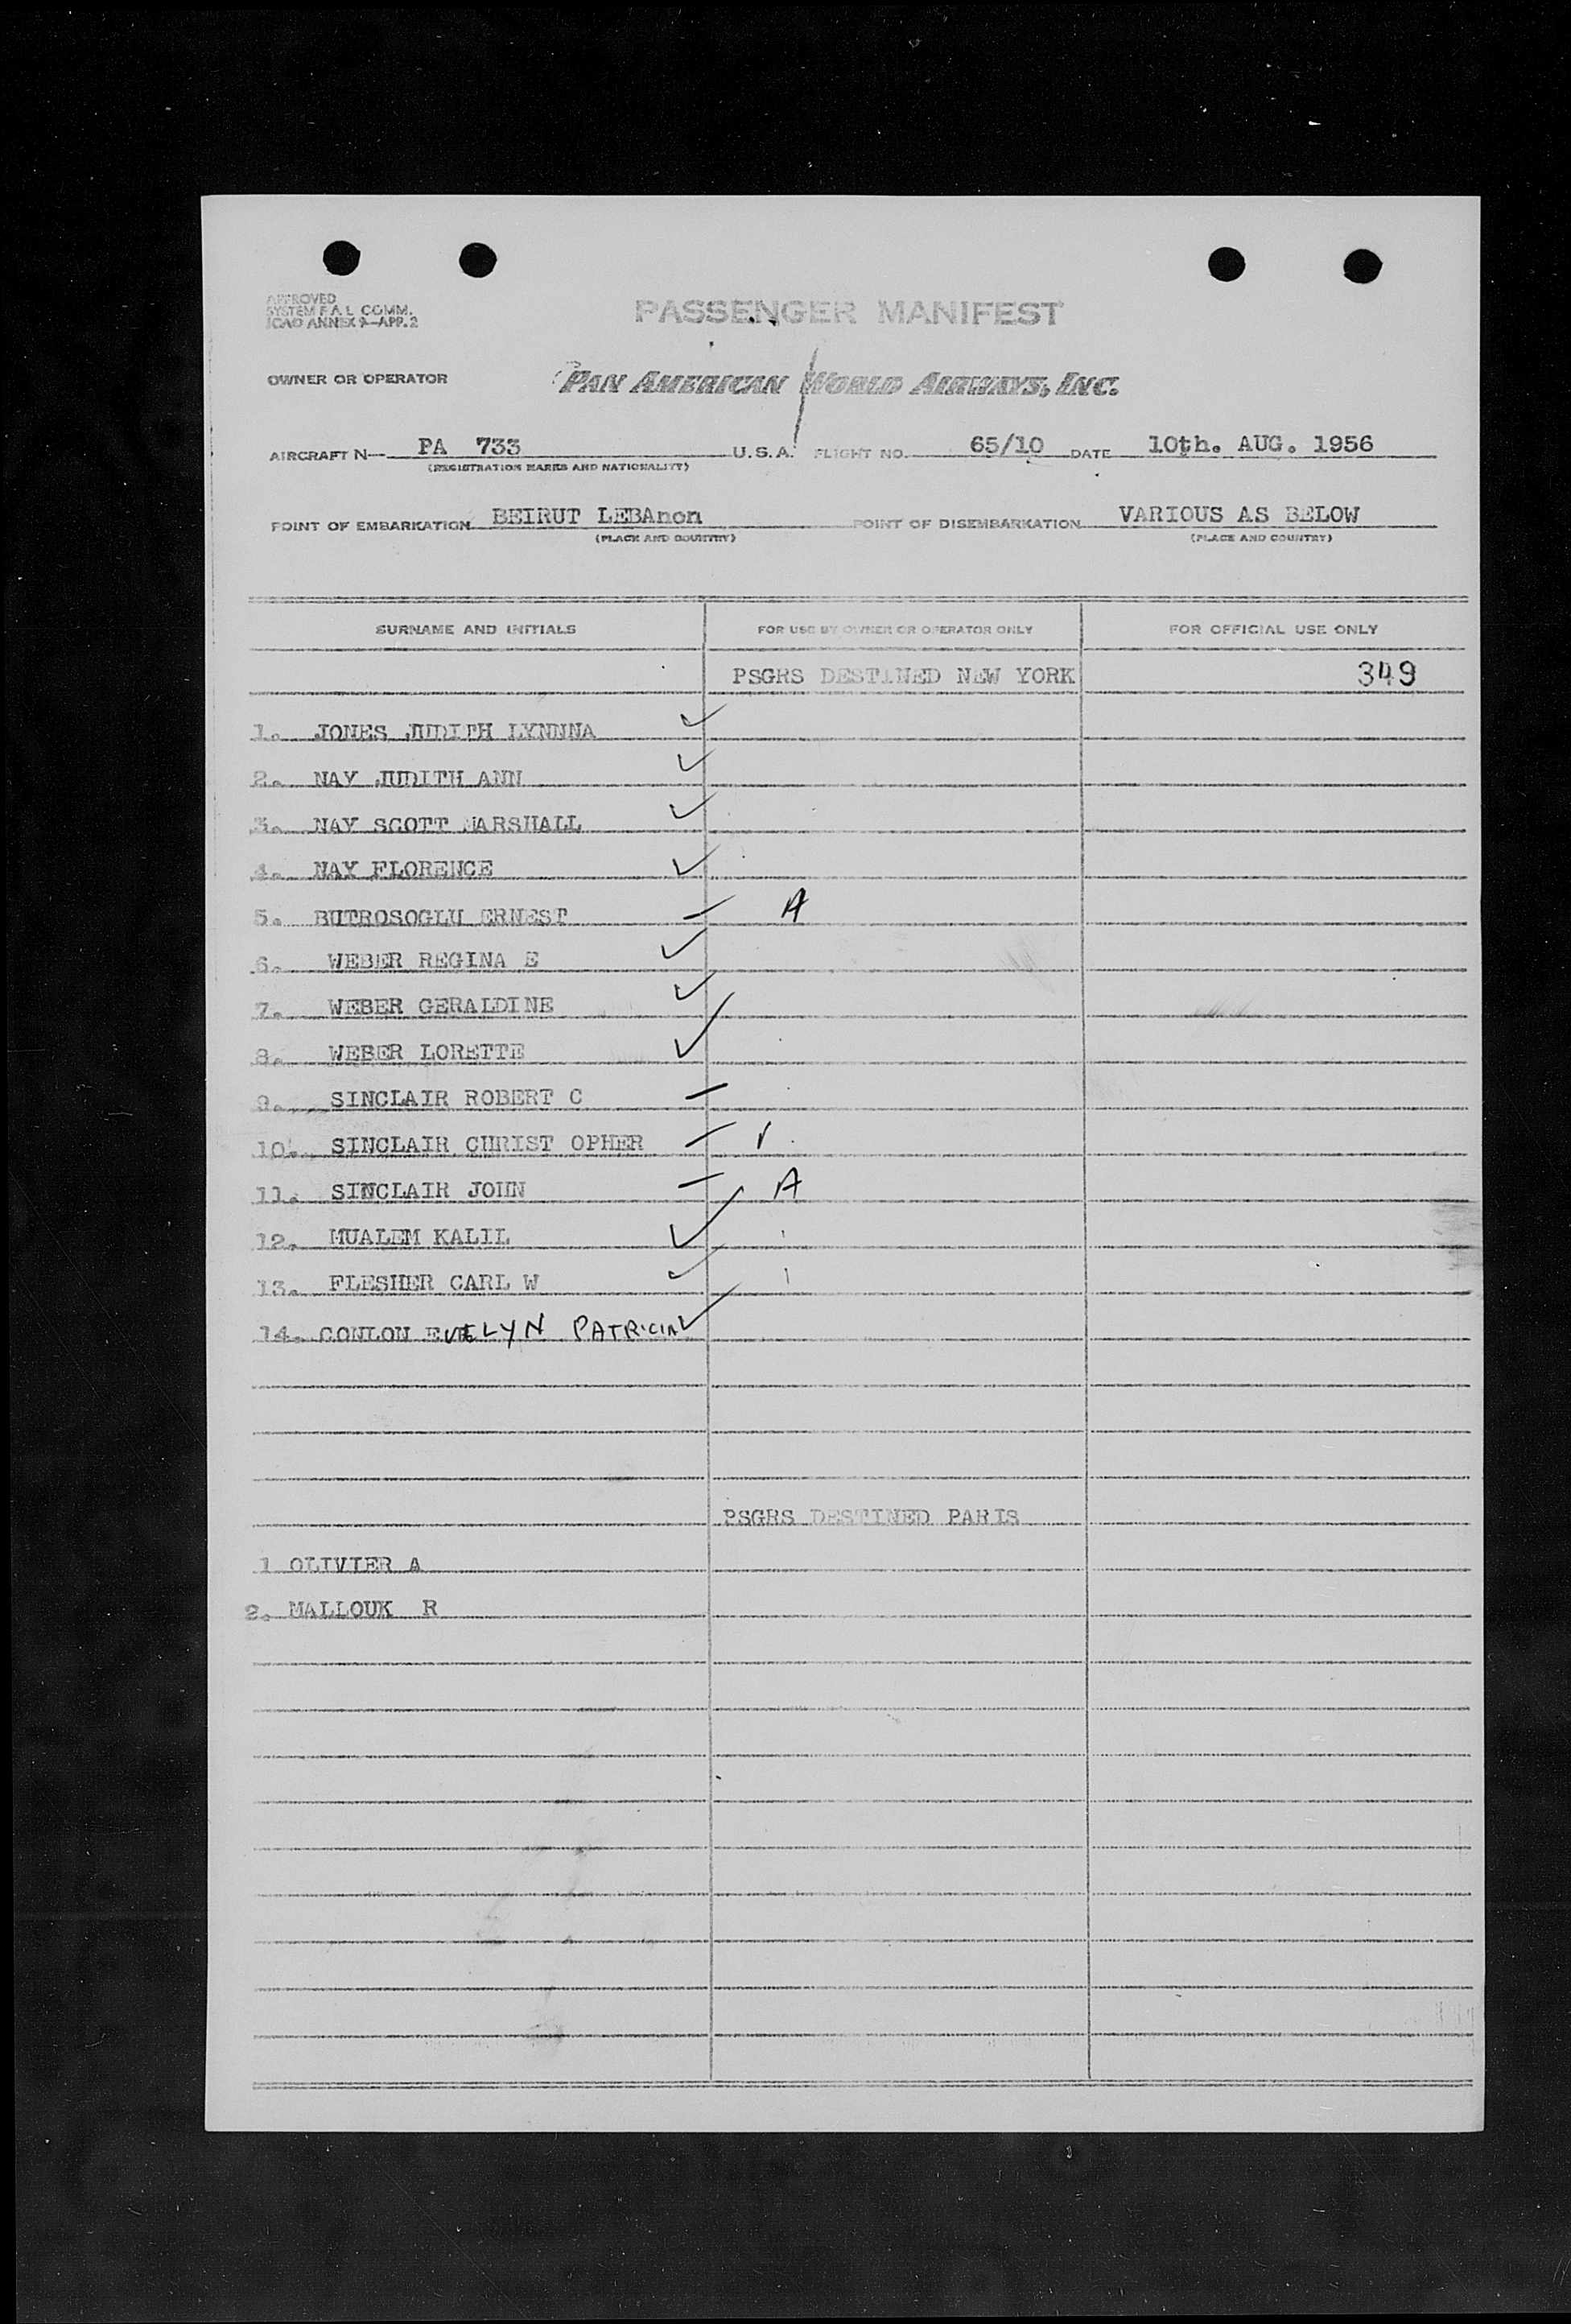 APPROVED
SYSTEM F A L COMM.
ICAO ANNEX 9—APP. 2
PASSENGER MANIFEST
OWNER OR OPERATOR PAN AMERICAN WORLD AIRWAYS, INC.
AIRCRAFT N— PA 733 U.S.A. FLIGHT NO. 65/10 DATE 10th. AUG. 1956
(REGISTRATION MARKS AND NATIONALITY)
POINT OF EMBARKATION BEIRUT LEBAnon POINT OF DISEMBARKATION VARIOUS AS BELOW
(PLACE AND COUNTRY) (PLACE AND COUNTRY)
SURNAME AND INITIALS FOR USE BY OWNER OR OPERATOR ONLY FOR OFFICIAL USE ONLY
PSGRS DESTINED NEW YORK 349
1. JONES JUDITH LYNNNA ✓
2. NAY JUDITH ANN ✓
3. NAY SCOTT MARSHALL ✓
4. NAY FLORENCE ✓
5. BUTROSOGLU ERNEST — A
6. WEBER REGINA E ✓
7. WEBER GERALDINE ✓
8. WEBER LORETTE ✓
9. SINCLAIR ROBERT C —
10. SINCLAIR CHRIST OPHER —
11. SINCLAIR JOHN — A
12. MUALEM KALIL ✓
13. FLESHER CARL W ✓
14. CONLON EVELYN PATRICIA ✓
PSGRS DESTINED PARIS
1 OLIVIER A
2. MALLOUK R